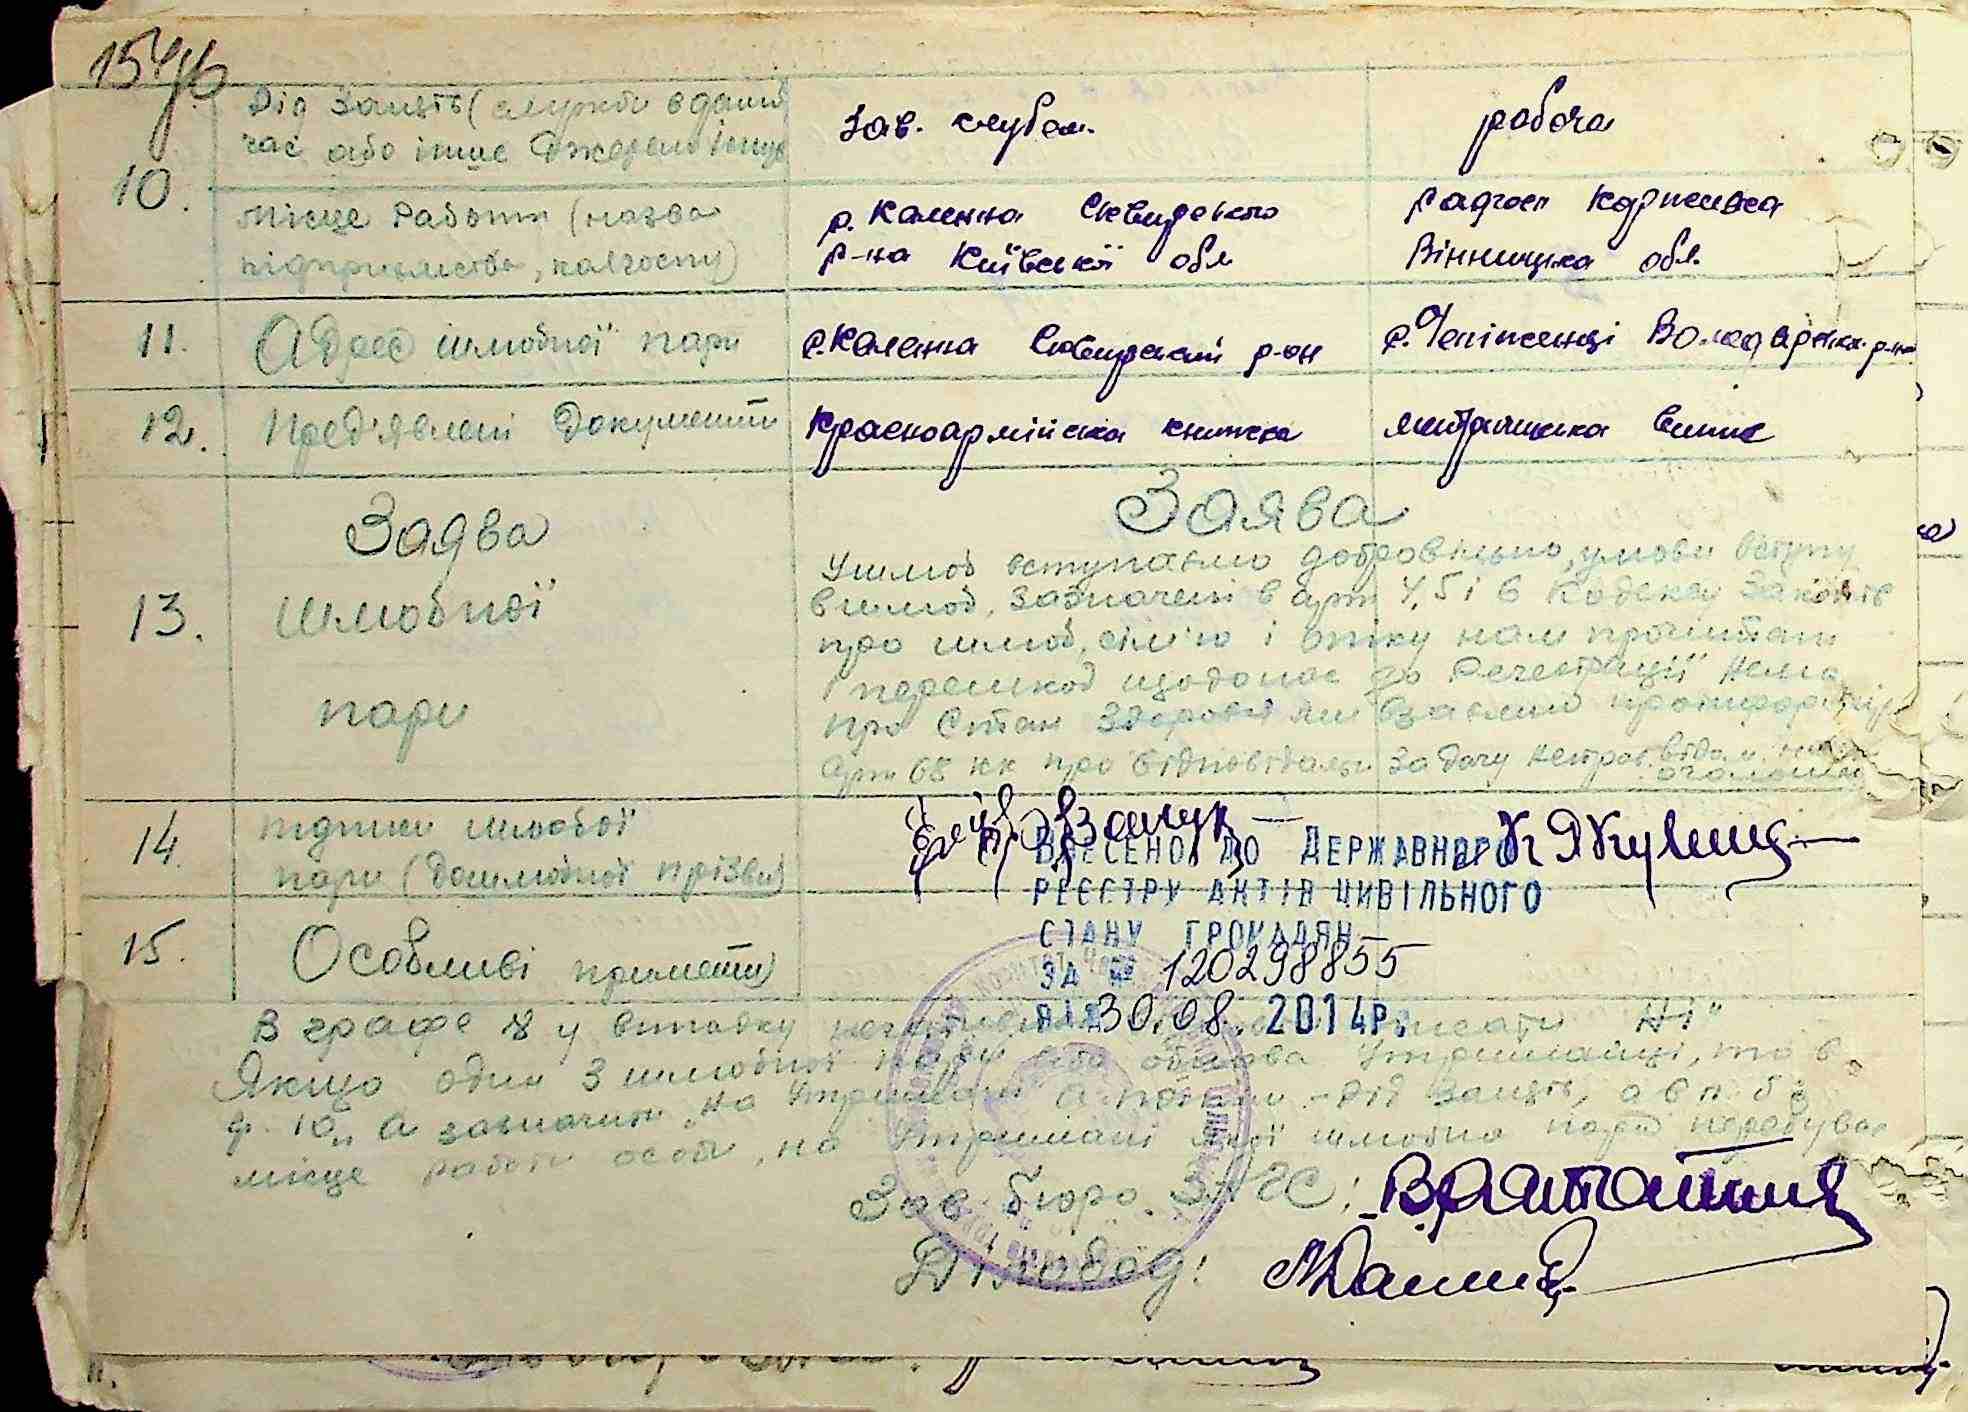 154
10.
Рід занять (служби в даний
час або інше джерело існув
зав. клубом.
робоча
Місце работи (назва
підприємства, колгоспу)
с. Каленна Сквирського
р-на Київської обл
радгосп Коржівка
Вінницька обл.
11.
Адрес шлюбної пари
с. Каленна Сквирський р-он
с. Чепіженці Володарськ. р-на
12.
Пред'явлені документи
Красноармійська книжка
метрична випис
13.
Заява
шлюбної
пари
Заява
У шлюб вступаємо добровільно, умови вступу
в шлюб, зазначені в арт 4, 5 і 6 Кодексу Законів
про шлюб, сім'ю і опіку нам прочитані
перешкод щодо нас до Реєстрації нема
про стан здоров'я ми взаємно проінформ
Арт 68 КК про відповідальн за дачу неправ. відом. нам
оголошен
14.
підписи шлюбної
пари (дошлюбної прізви)
К Якувец
ВНЕСЕНО ДО ДЕРЖАВНОГО
РЕЄСТРУ АКТІВ ЦИВІЛЬНОГО
СТАНУ ГРОМАДЯН
ЗА № 120298855
ВІД 30.08.2014Р.
15.
Особливі примети
В графе 8 у випадку писати "Ні"
Якщо один з шлюбної пари або обидва утриманці, то в
ф. 10 "А зазначити "на утриман" а потім - рід занять, а в п. б з
місце работи особи, на утримані якої шлюбна пара перебуває
Зав. бюро ЗАГС:
Діловод: